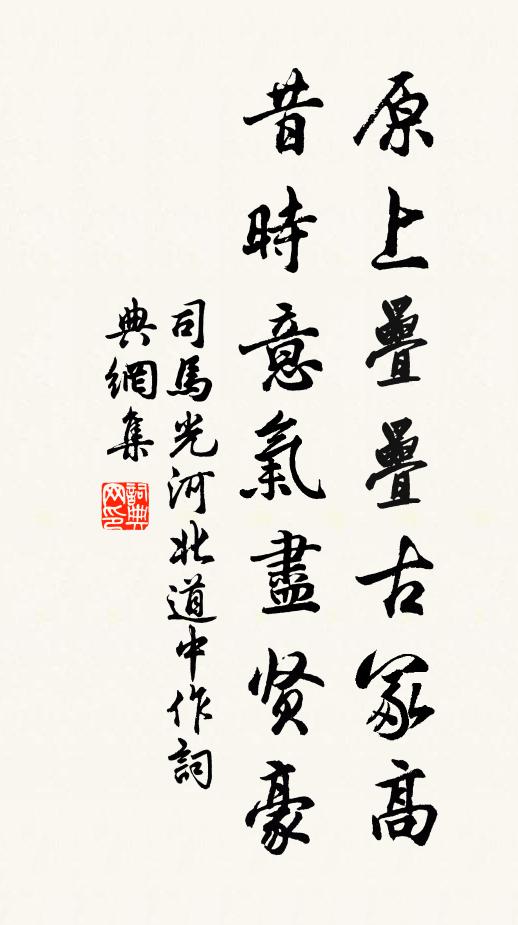 原上疊疊古冢高
昔時意氣盡贤豪
司馬光河北道中作詞
典網集
詞典
网印